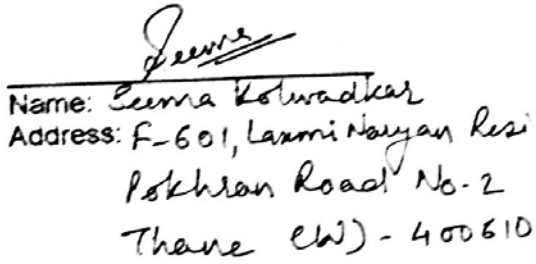 Seema
Name: Seema Kolwadkar
Address: F-601, Laxmi Naryan Resi
Pokhran Road No-2
Thane (W) - 400610